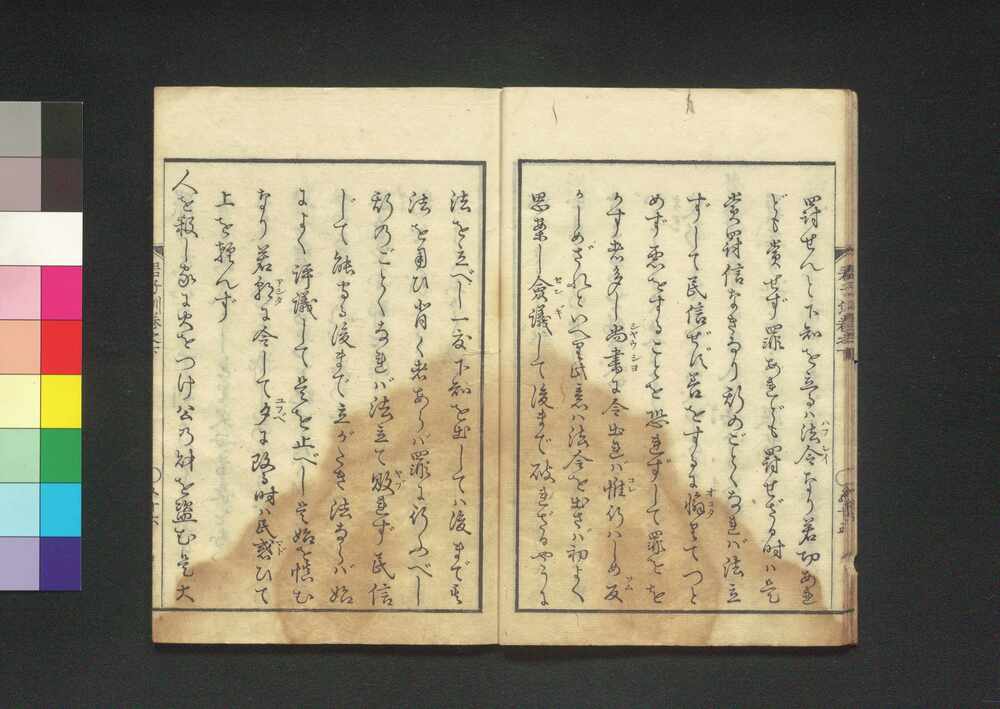 罰せんと下知を立るハ法令なり若功あれ
ども賞せず罪あれども罰せざる時ハ是
賞罰信なきなり斯のごとくなれバ法立
ずして民信ぜず善をするに惰りてつと
めず悪をすることを恐れずして罪を を
かす者多し尚書に令出れハ惟行ハしめ反
かしめざれといへり此意ハ法令を出さバ初よく
思案し僉議して後まで破れざるやうに
法を立べし一度下知を出してハ後まで其
法を用ひ背く者あらバ罪に行ふべし
斯のごとくなれバ法立て敗れず民信
じて能守る後まで立がたき法ならバ始
によく評議して是を止べし是始を慎む
なり若朝に令して夕に改る時ハ民惑ひて
上を軽んず
人を殺し家に火をつけ公の財を盗む是大